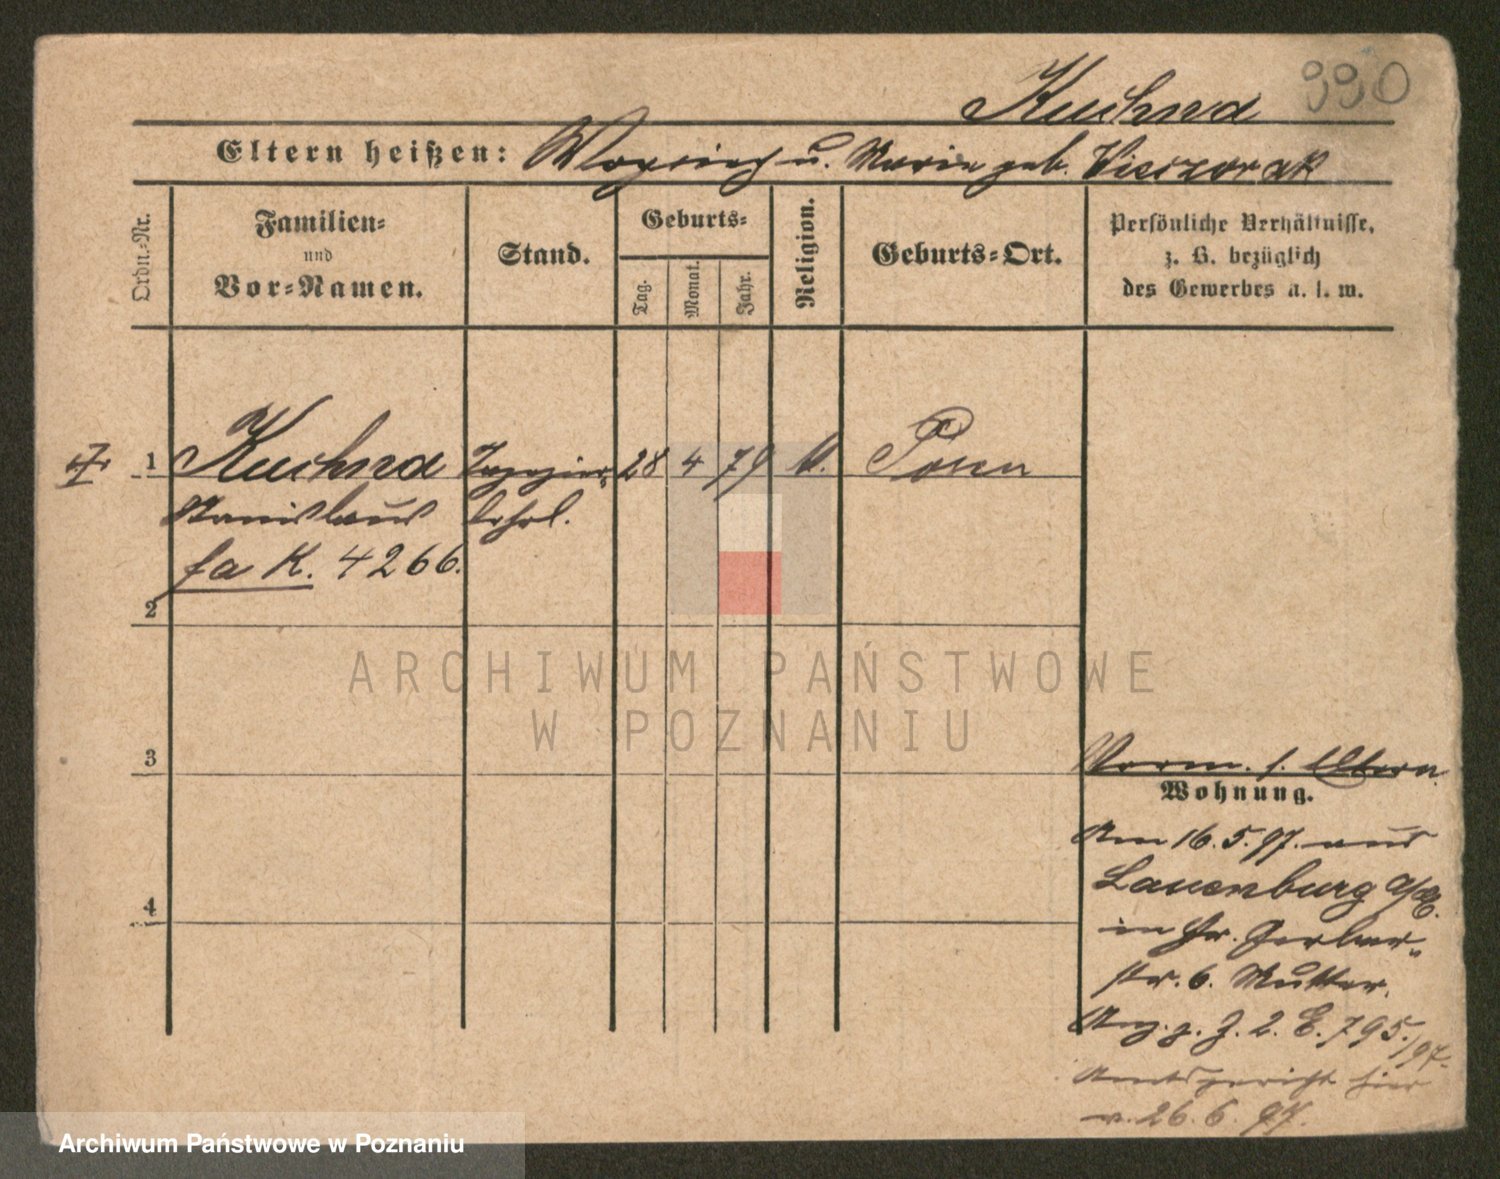 Kuchna 990
Eltern heißen: Woyciech u. Marie geb. Viezorak
Ordn.-Nr.
Familien-
und
Vor-Namen.
Stand.
Geburts-
Tag.
Monat.
Jahr.
Religion.
Geburts-Ort.
Persönliche Verhältnisse,
z. B. bezüglich
des Gewerbes u. s. w.
1 Kuchna Tapezier- 28 4 79 Posen
Stanislaus lehrl.
fa K. 4266.
2
3
4
Verm. s. Eltern
Wohnung.
Am 16.5.97. aus
Lauenburg a/E.
in Gerber-
str. 6. Mutter.
J. 2. E. 795./97.
Amtsgericht hier
v. 26.6.97.
ARCHIWUM PAŃSTWOWE
W POZNANIU
Archiwum Państwowe w Poznaniu